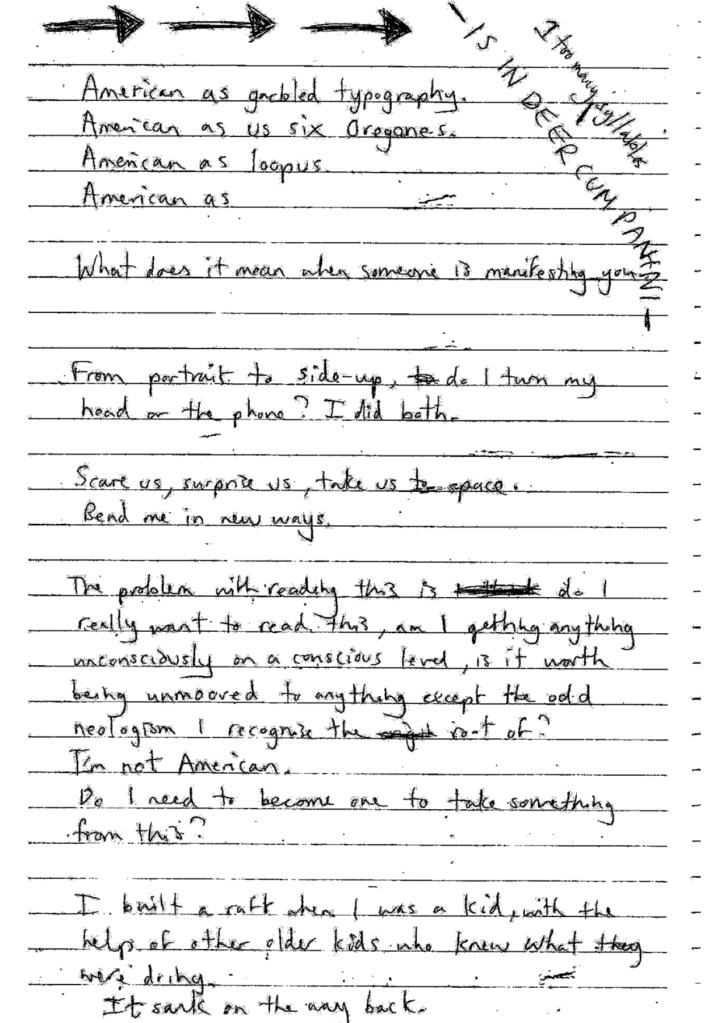 - IS IN DEER CUM PANINI -
1 too many syllables
American as garbled typography.
American as us six Oregones.
American as loopus.
American as
What does it mean when someone is manifesting you
From portrait to side-up, do I turn my
head or the phone? I did both.
Scare us, surprise us, take us to space.
Bend me in new ways.
The problem with reading this is do I
really want to read this, am I getting anything
unconsciously on a conscious level, is it worth
being unmoored to anything except the odd
neologism I recognize the root of?
I'm not American.
Do I need to become one to take something
from this?
I built a raft when I was a kid, with the
help of other older kids who knew what they
were doing.
It sank on the way back.